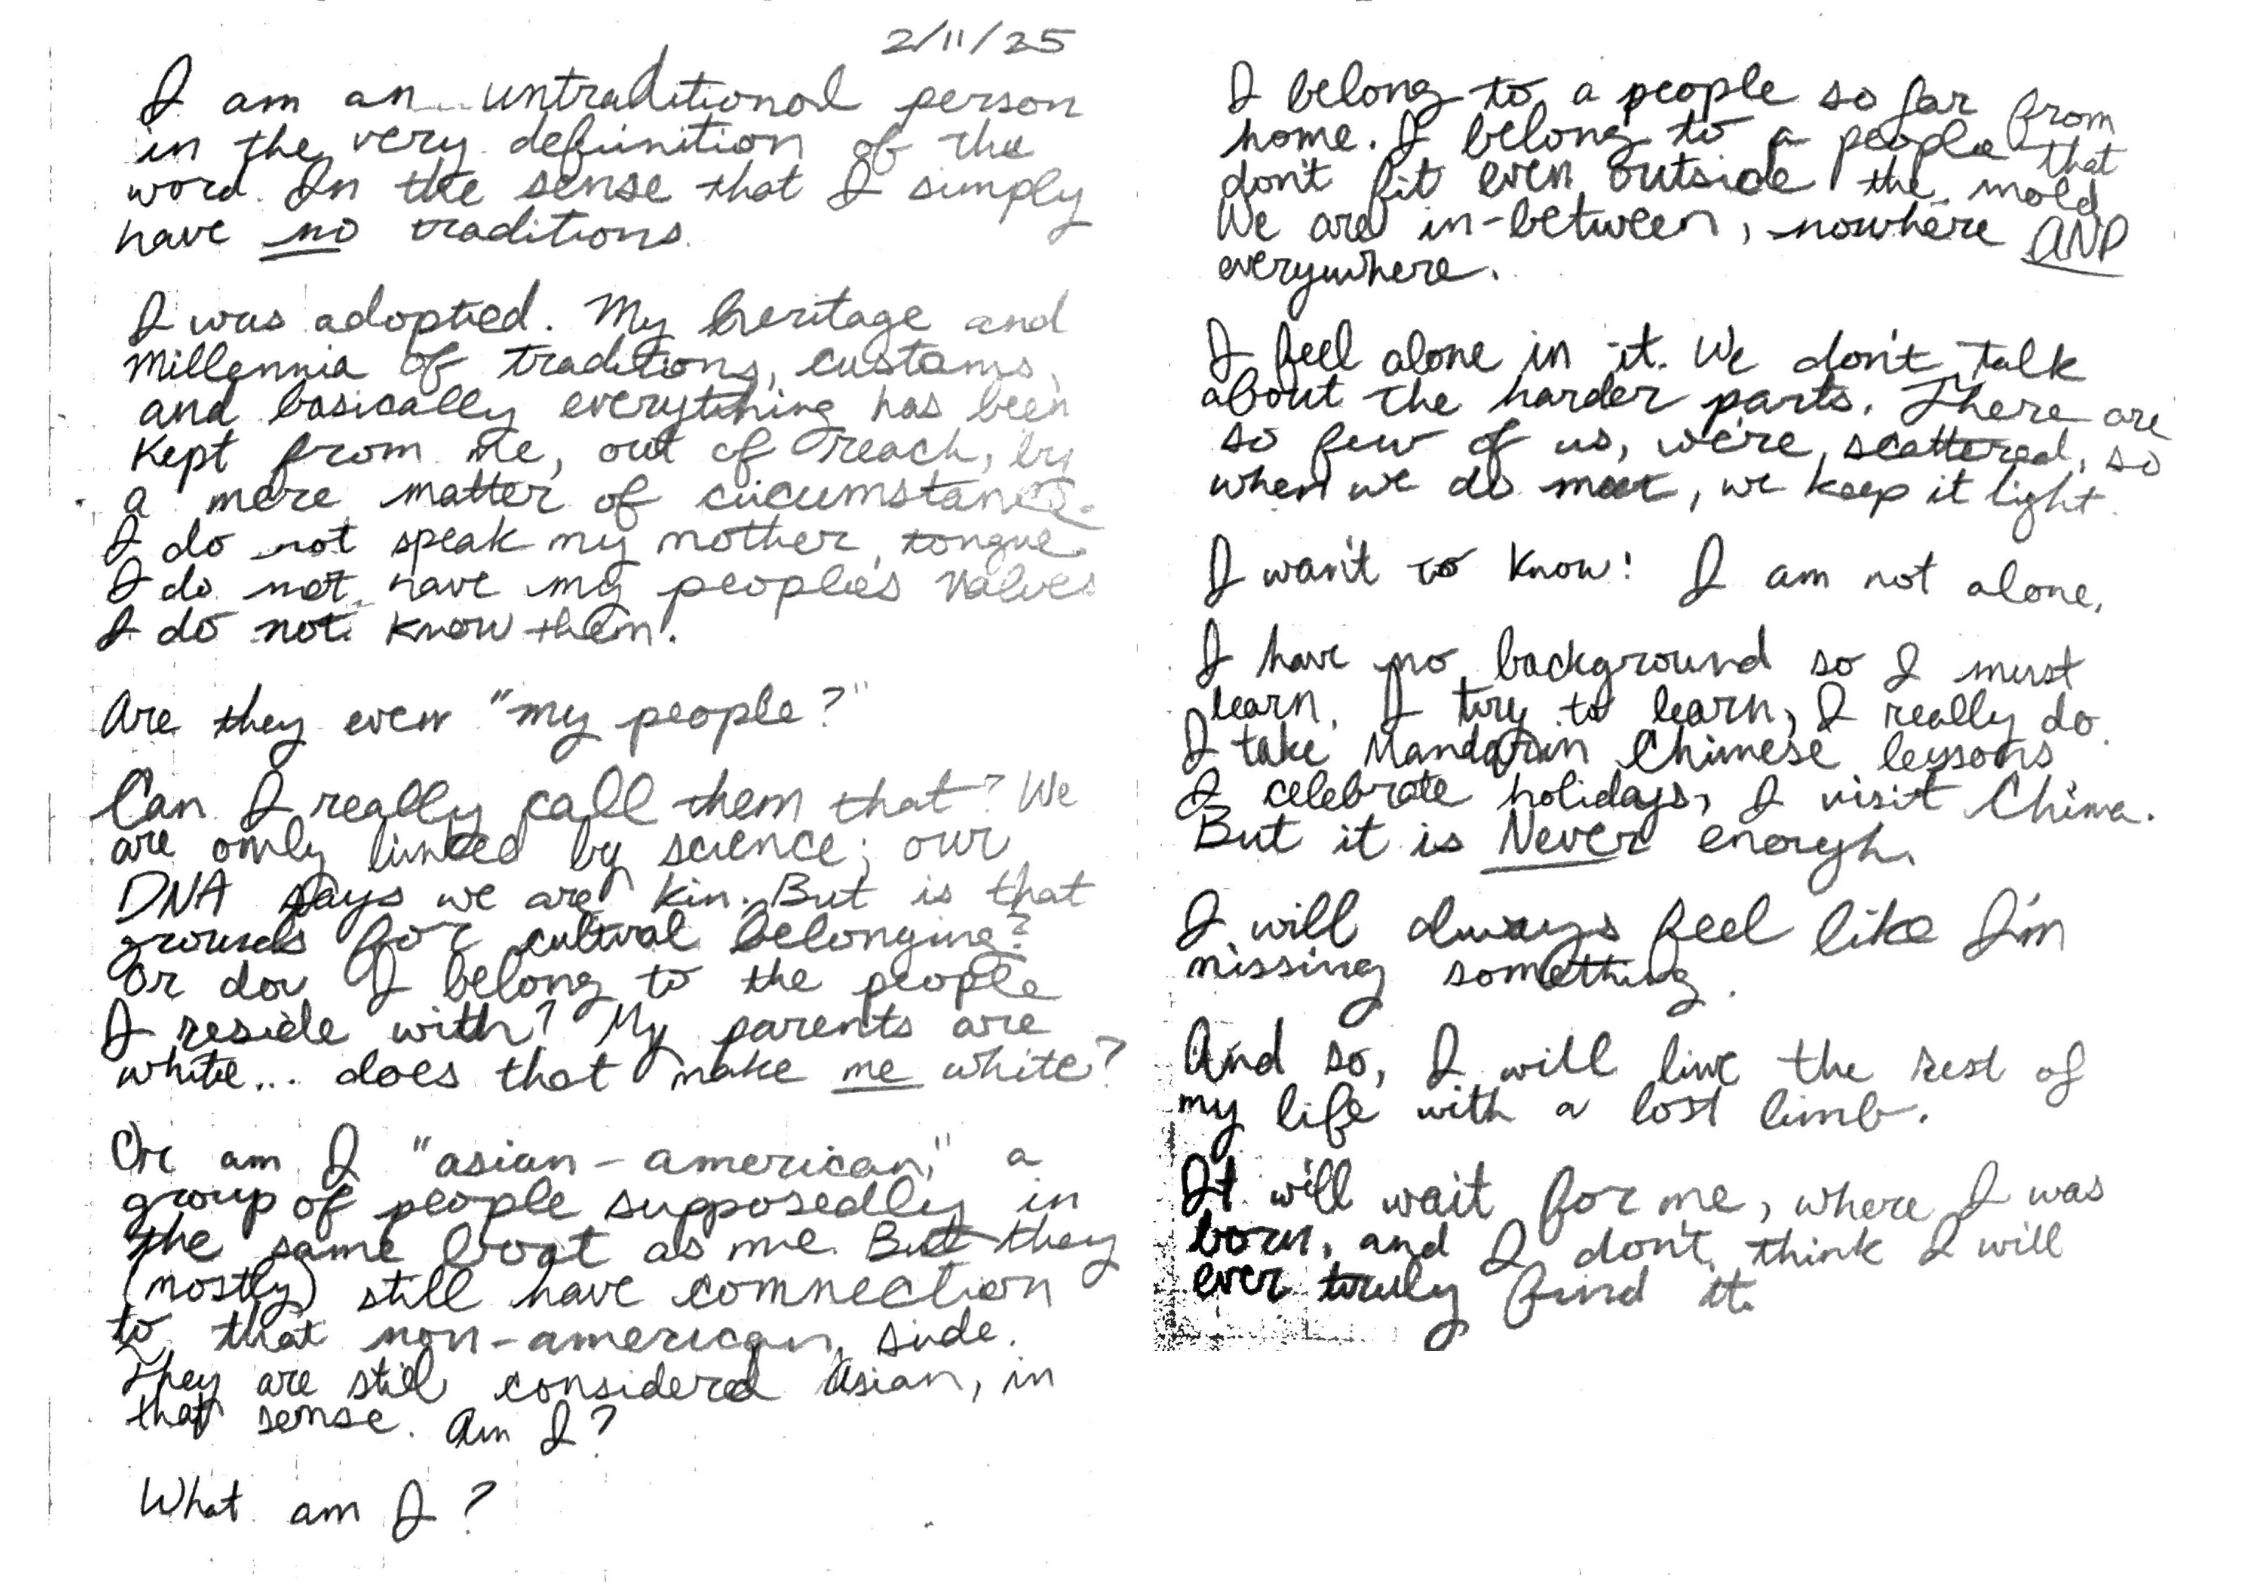 2/11/25
I am an untraditional person
in the very definition of the
word. In the sense that I simply
have no traditions.
I was adopted. My heritage and
millennia of traditions, customs,
and basically everything has been
kept from me, out of reach, by
a mere matter of circumstance.
I do not speak my mother tongue
I do not have my people's values
I do not know them.
Are they even "my people?"
Can I really call them that? We
are only linked by science; our
DNA says we are kin. But is that
grounds for cultural belonging?
Or do I belong to the people
I reside with? My parents are
white... does that make me white?
Or am I "asian-american," a
group of people supposedly in
the same boat as me. But they
(mostly) still have connection
to that non-american side.
They are still considered Asian, in
that sense. Am I?
What am I?
I belong to a people so far from
home. I belong to a people that
don't fit even outside the mold
We are in-between, nowhere AND
everywhere.
I feel alone in it. We don't talk
about the harder parts. There are
so few of us, we're scattered, so
when we do meet, we keep it light.
I want to know: I am not alone.
I have no background so I must
learn. I try to learn, I really do.
I take Mandarin Chinese lessons
I celebrate holidays, I visit China.
But it is Never enough.
I will always feel like I'm
missing something.
And so, I will live the rest of
my life with a lost limb.
It will wait for me, where I was
born, and I don't think I will
ever truly find it.